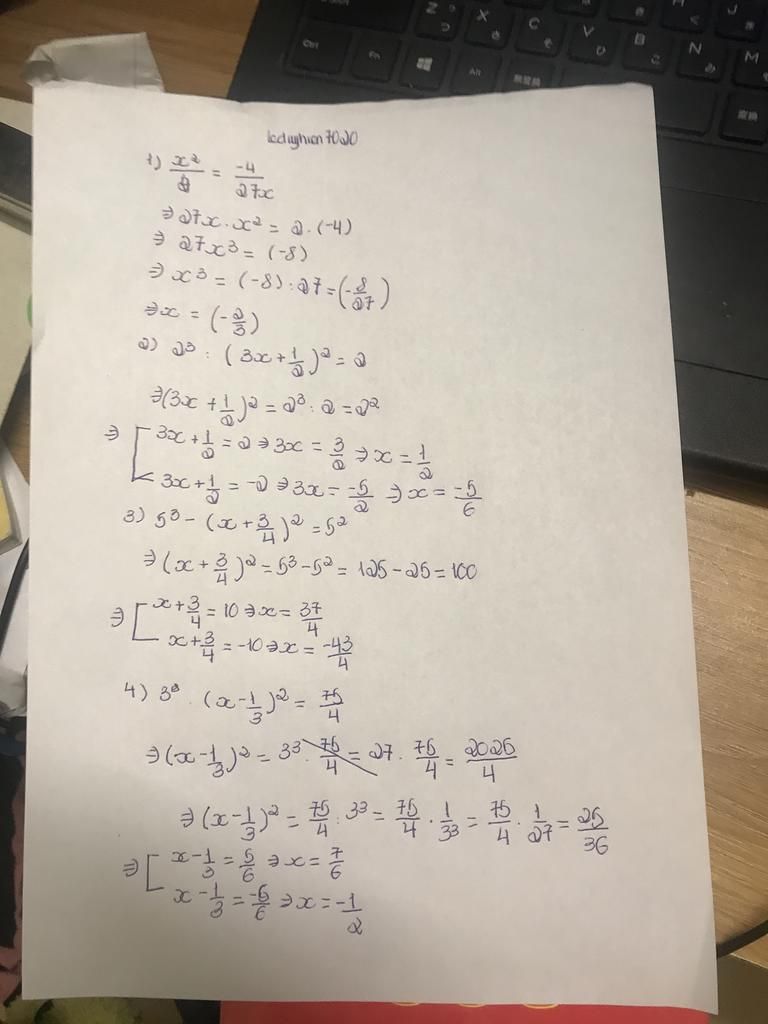 Z
X
C
V
B
N
M
J
Ctrl
Fn
Alt
無変換
変換
1) x²/2 = -4/27x
⇒ 27x . x² = 2 . (-4)
⇒ 27x³ = (-8)
⇒ x³ = (-8) : 27 = (-8/27)
⇒ x = (-2/3)
2) 2³ : (3x + 1/2)² = 2
⇒ (3x + 1/2)² = 2³ : 2 = 2²
⇒ [ 3x + 1/2 = 2 ⇒ 3x = 3/2 ⇒ x = 1/2
3x + 1/2 = -2 ⇒ 3x = -5/2 ⇒ x = -5/6
3) 5³ - (x + 3/4)² = 5²
⇒ (x + 3/4)² = 5³ - 5² = 125 - 25 = 100
⇒ [ x + 3/4 = 10 ⇒ x = 37/4
x + 3/4 = -10 ⇒ x = -43/4
4) 3³ . (x - 1/3)² = 75/4
⇒ (x - 1/3)² = 3³ . 75/4 = 27 . 75/4 = 2025/4
⇒ (x - 1/3)² = 75/4 : 3³ = 75/4 . 1/3³ = 75/4 . 1/27 = 25/36
⇒ [ x - 1/3 = 5/6 ⇒ x = 7/6
x - 1/3 = -5/6 ⇒ x = -1/2